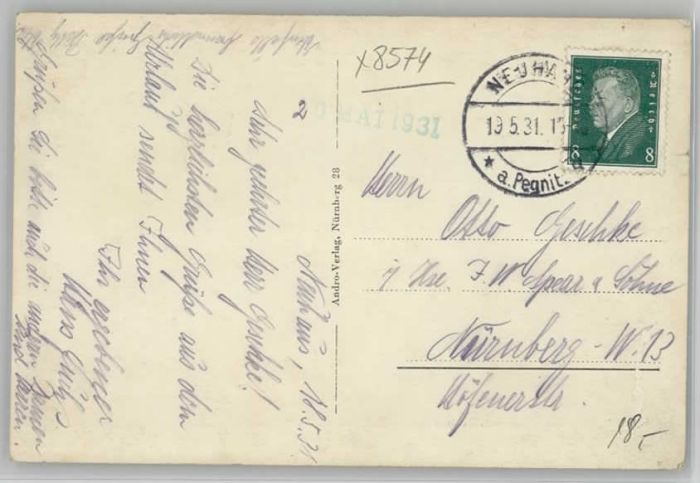 x8574
NEUHAUS
19.5.31.
* a. Pegnitz
MAI 1931
Deutsches Reich
8 8
Herrn
Otto Geschke
i/ Hse. J. W. Spear & Söhne
Nürnberg-W. 13
Höfenerstr.
18,-
Andro-Verlag, Nürnberg 28
Neuhaus, 18.5.31
Sehr geehrter Herr Geschke!
Die herzlichsten Grüße aus dem
Urlaub sendet Ihnen
Ihr ergebener
Hans
Grüßen Sie bitte auch die anderen Damen
und Herren.